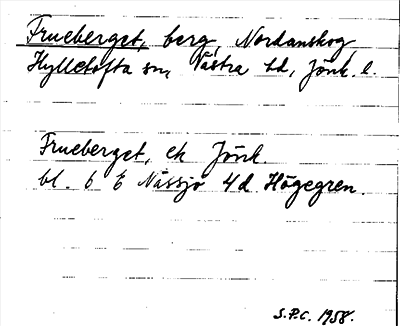 Frueberget, berg, Nordanskog,
Hylletofta sn, Västra hd, Jönk. l.
Frueberget, ek Jönk.
bl. 6 E Nässjö 4d Högegren.
S.P.C. 1958.